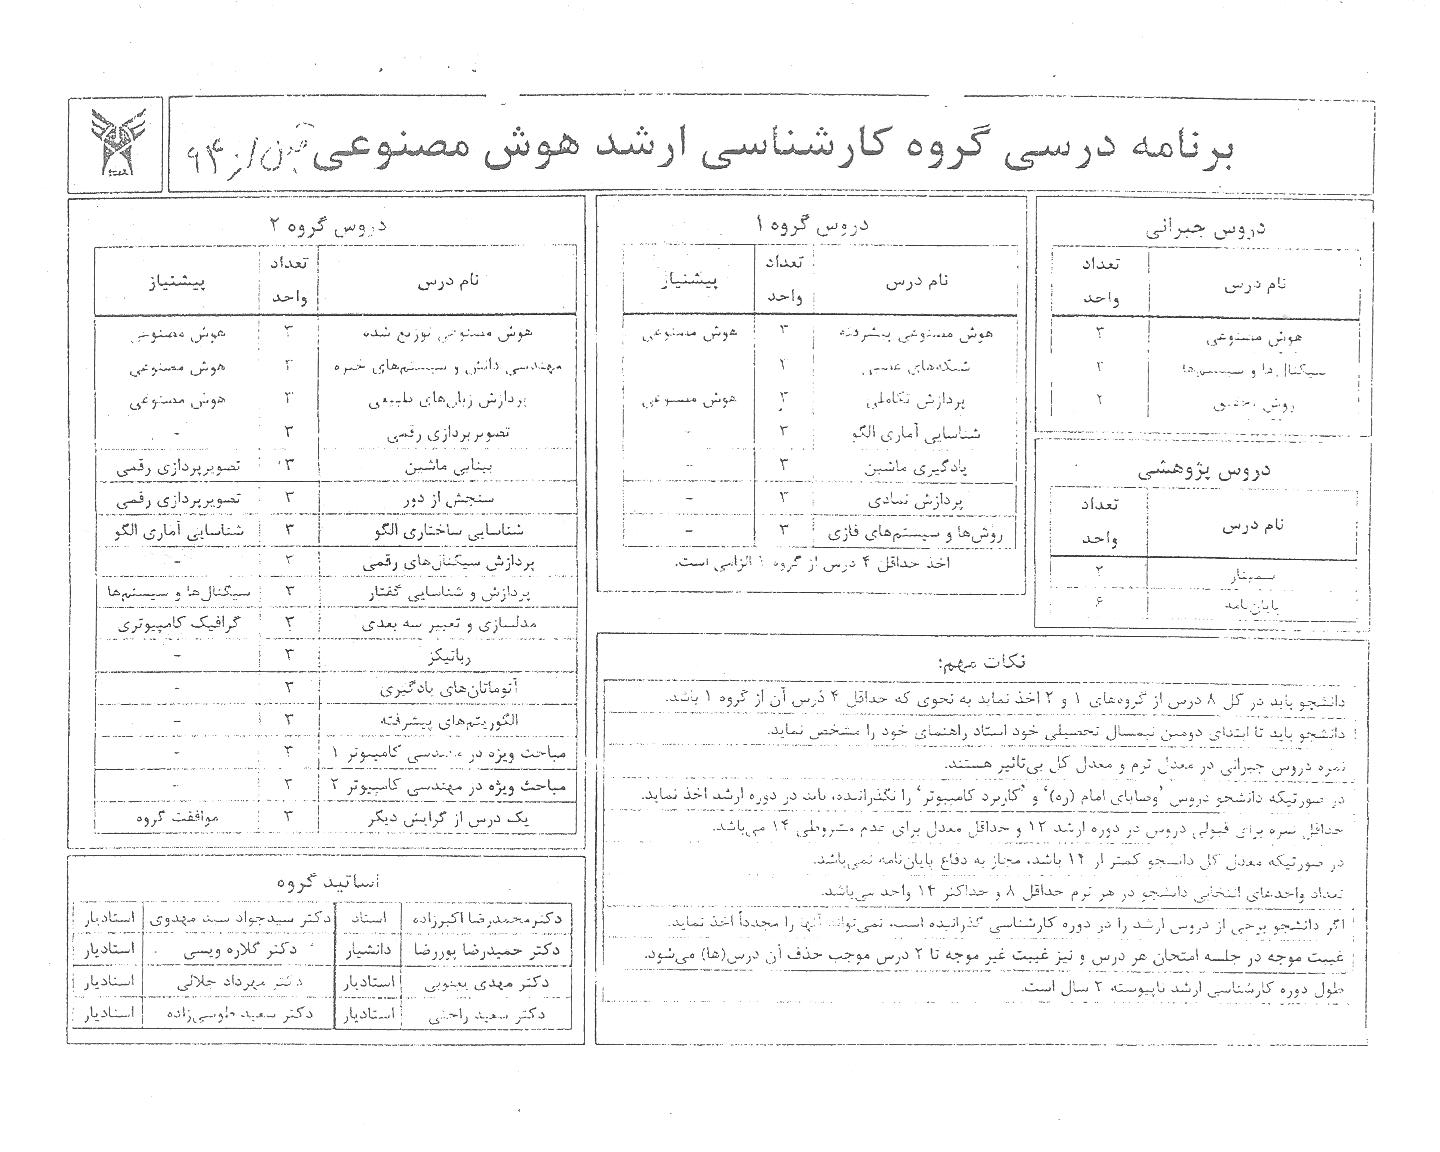 برنامه درسی گروه کارشناسی ارشد هوش مصنوعی ۹۴
دروس جبرانی
نام درس تعداد واحد
هوش مصنوعی ۳
سیگنال‌ها و سیستم‌ها ۳
روش تحقیق ۲
دروس پژوهشی
نام درس تعداد واحد
سمینار ۲
پایان‌نامه ۶
دروس گروه ۱
نام درس تعداد واحد پیشنیاز
هوش مصنوعی پیشرفته ۳ هوش مصنوعی
شبکه‌های عصبی ۳
پردازش تکاملی ۳ هوش مصنوعی
شناسایی آماری الگو ۳ -
یادگیری ماشین ۳ -
پردازش نمادی ۳ -
روش‌ها و سیستم‌های فازی ۳ -
اخذ حداقل ۴ درس از گروه ۱ الزامی است.
دروس گروه ۲
نام درس تعداد واحد پیشنیاز
هوش مصنوعی توزیع شده ۳ هوش مصنوعی
مهندسی دانش و سیستم‌های خبره ۳ هوش مصنوعی
پردازش زبان‌های طبیعی ۳ هوش مصنوعی
تصویرپردازی رقمی ۳ -
بینایی ماشین ۳ تصویرپردازی رقمی
سنجش از دور ۳ تصویرپردازی رقمی
شناسایی ساختاری الگو ۳ شناسایی آماری الگو
پردازش سیگنال‌های رقمی ۳ -
پردازش و شناسایی گفتار ۳ سیگنال‌ها و سیستم‌ها
مدلسازی و تعبیر سه بعدی ۳ گرافیک کامپیوتری
رباتیکز ۳ -
آتوماتان‌های یادگیری ۳ -
الگوریتم‌های پیشرفته ۳ -
مباحث ویژه در مهندسی کامپیوتر ۱ ۳ -
مباحث ویژه در مهندسی کامپیوتر ۲ ۳ -
یک درس از گرایش دیگر ۳ موافقت گروه
نکات مهم:
دانشجو باید در کل ۸ درس از گروه‌های ۱ و ۲ اخذ نماید به نحوی که حداقل ۴ درس آن از گروه ۱ باشد.
دانشجو باید تا ابتدای دومین نیمسال تحصیلی خود استاد راهنمای خود را مشخص نماید.
نمره دروس جبرانی در معدل ترم و معدل کل بی‌تاثیر هستند.
در صورتیکه دانشجو دروس 'وصایای امام (ره)' و 'کاربرد کامپیوتر' را نگذرانده، باید در دوره ارشد اخذ نماید.
حداقل نمره برای قبولی دروس در دوره ارشد ۱۲ و حداقل معدل برای عدم مشروطی ۱۴ می‌باشد.
در صورتیکه معدل کل دانشجو کمتر از ۱۴ باشد، مجاز به دفاع پایان‌نامه نمی‌باشد.
تعداد واحدهای انتخابی دانشجو در هر ترم حداقل ۸ و حداکثر ۱۴ واحد می‌باشد.
اگر دانشجو برخی از دروس ارشد را در دوره کارشناسی گذرانده است، نمی‌تواند آنها را مجدداً اخذ نماید.
غیبت موجه در جلسه امتحان هر درس و نیز غیبت غیر موجه تا ۲ درس موجب حذف آن درس(ها) می‌شود.
طول دوره کارشناسی ارشد ناپیوسته ۲ سال است.
اساتید گروه
دکتر محمدرضا اکبرزاده استاد دکتر سیدجواد سید مهدوی استادیار
دکتر حمیدرضا پوررضا دانشیار دکتر گلاره ویسی استادیار
دکتر مهدی یعقوبی استادیار دکتر مهرداد جلالی استادیار
دکتر سعید راحتی استادیار دکتر سعید طوسی‌زاده استادیار